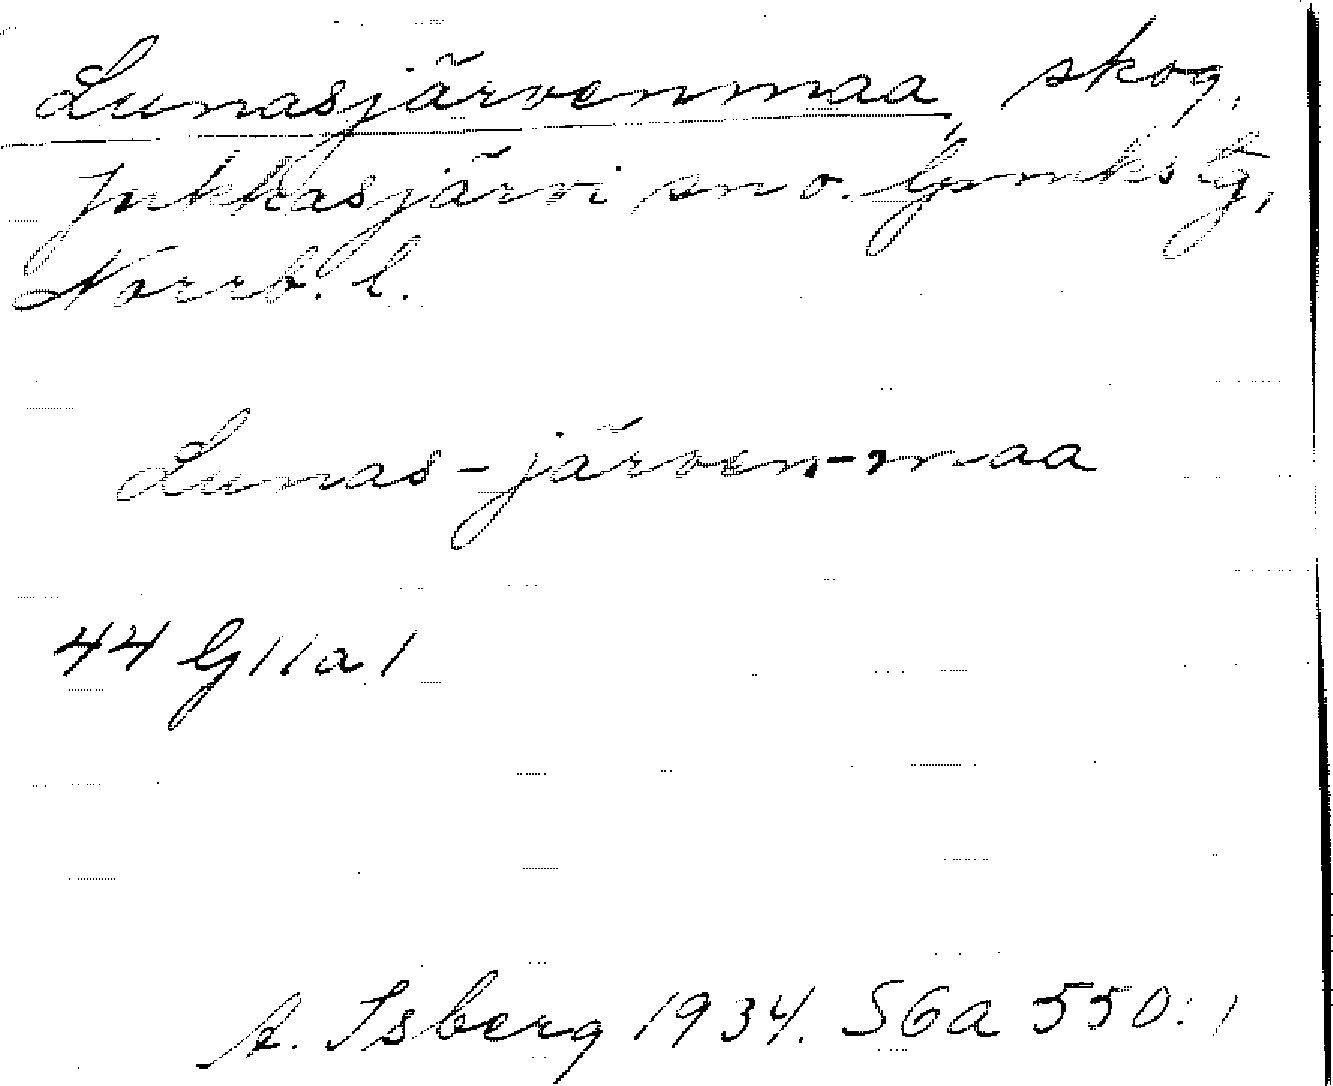 Lunasjärvenmaa, skog,
Jukkasjärvi sn o. lpmks tg,
Norrb. l.
Lunas-järven-maa
44 G 11 a 1
A. Isberg 1934. SGa 550:1